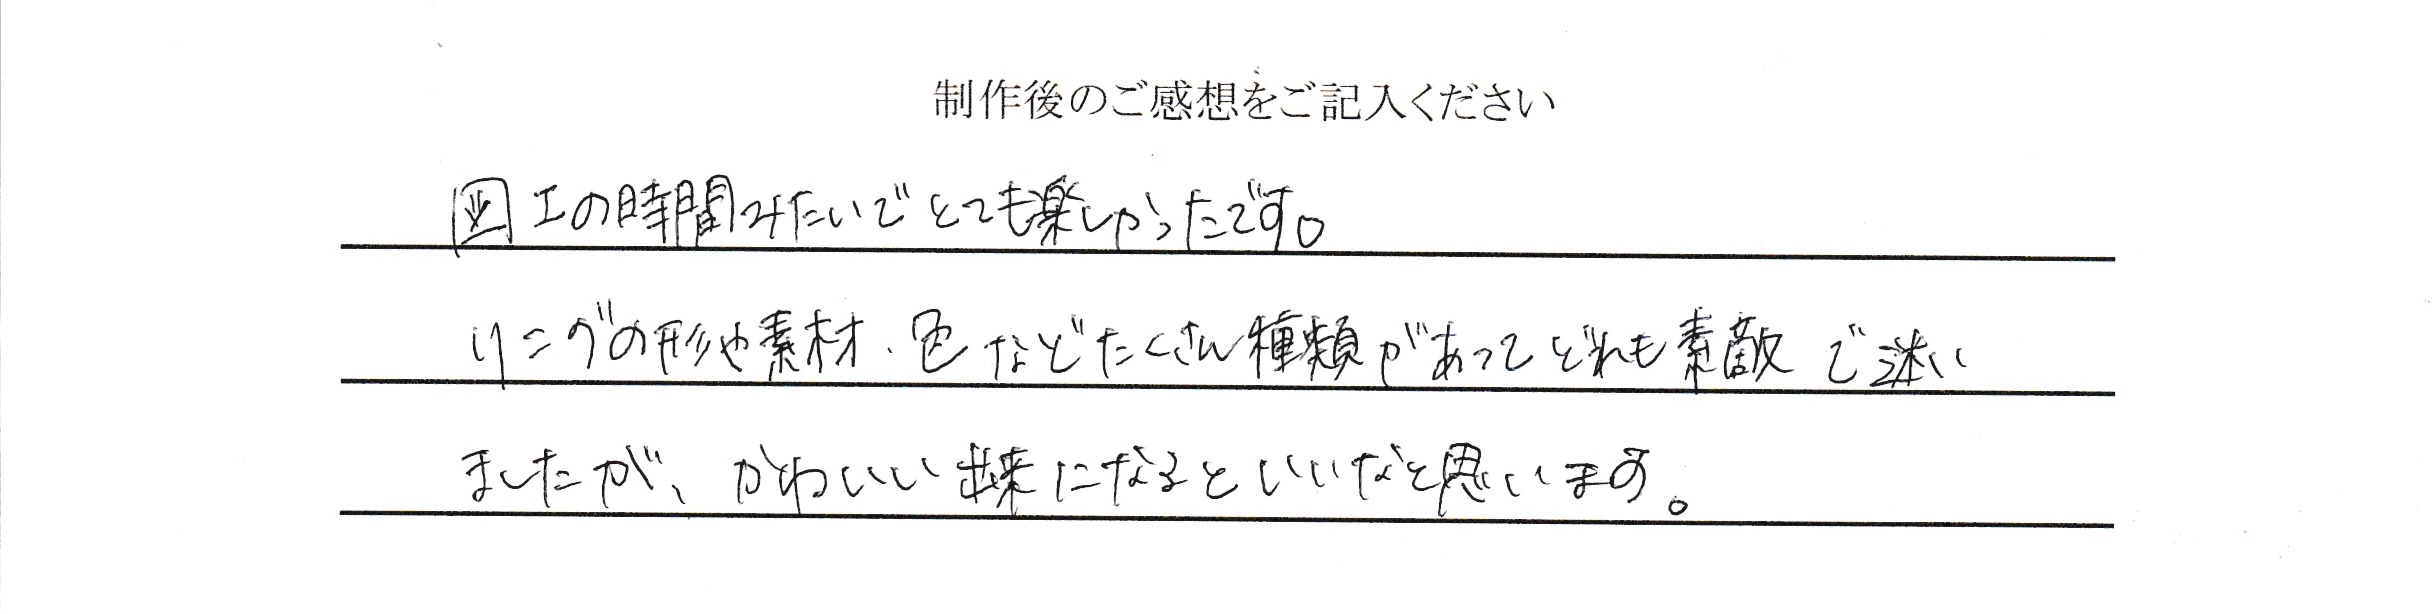 制作後のご感想をご記入ください
図工の時間みたいでとても楽しかったです。
リングの形や素材、色などたくさん種類があってどれも素敵で迷い
ましたが、かわいい出来になるといいなと思います。